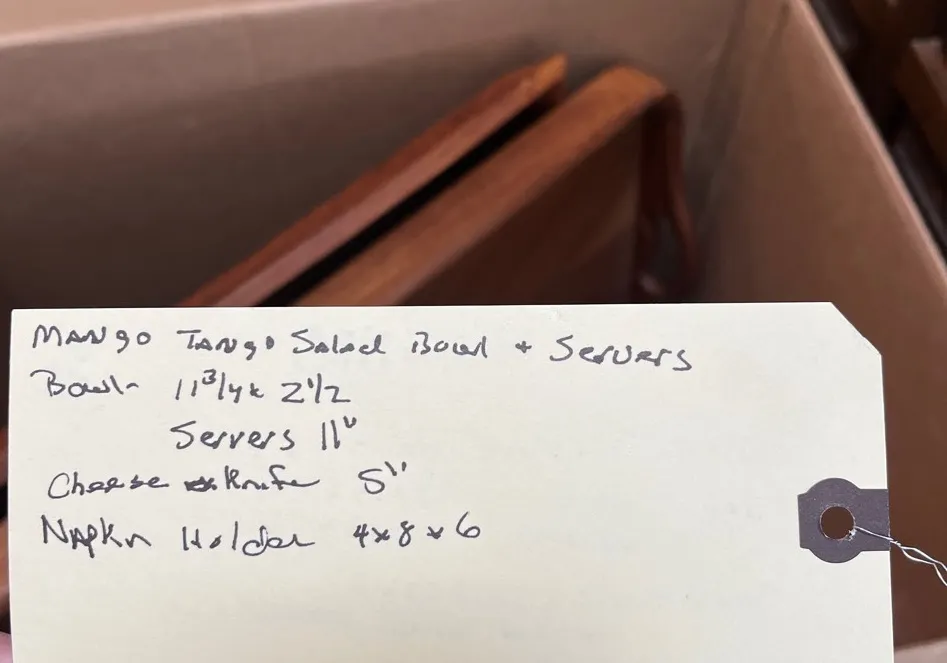 Mango Tango Salad Bowl + Servers
Bowl- 11 3/4 x 2 1/2
Servers 11"
Cheese Knife 5"
Napkn Holder 4x8x6